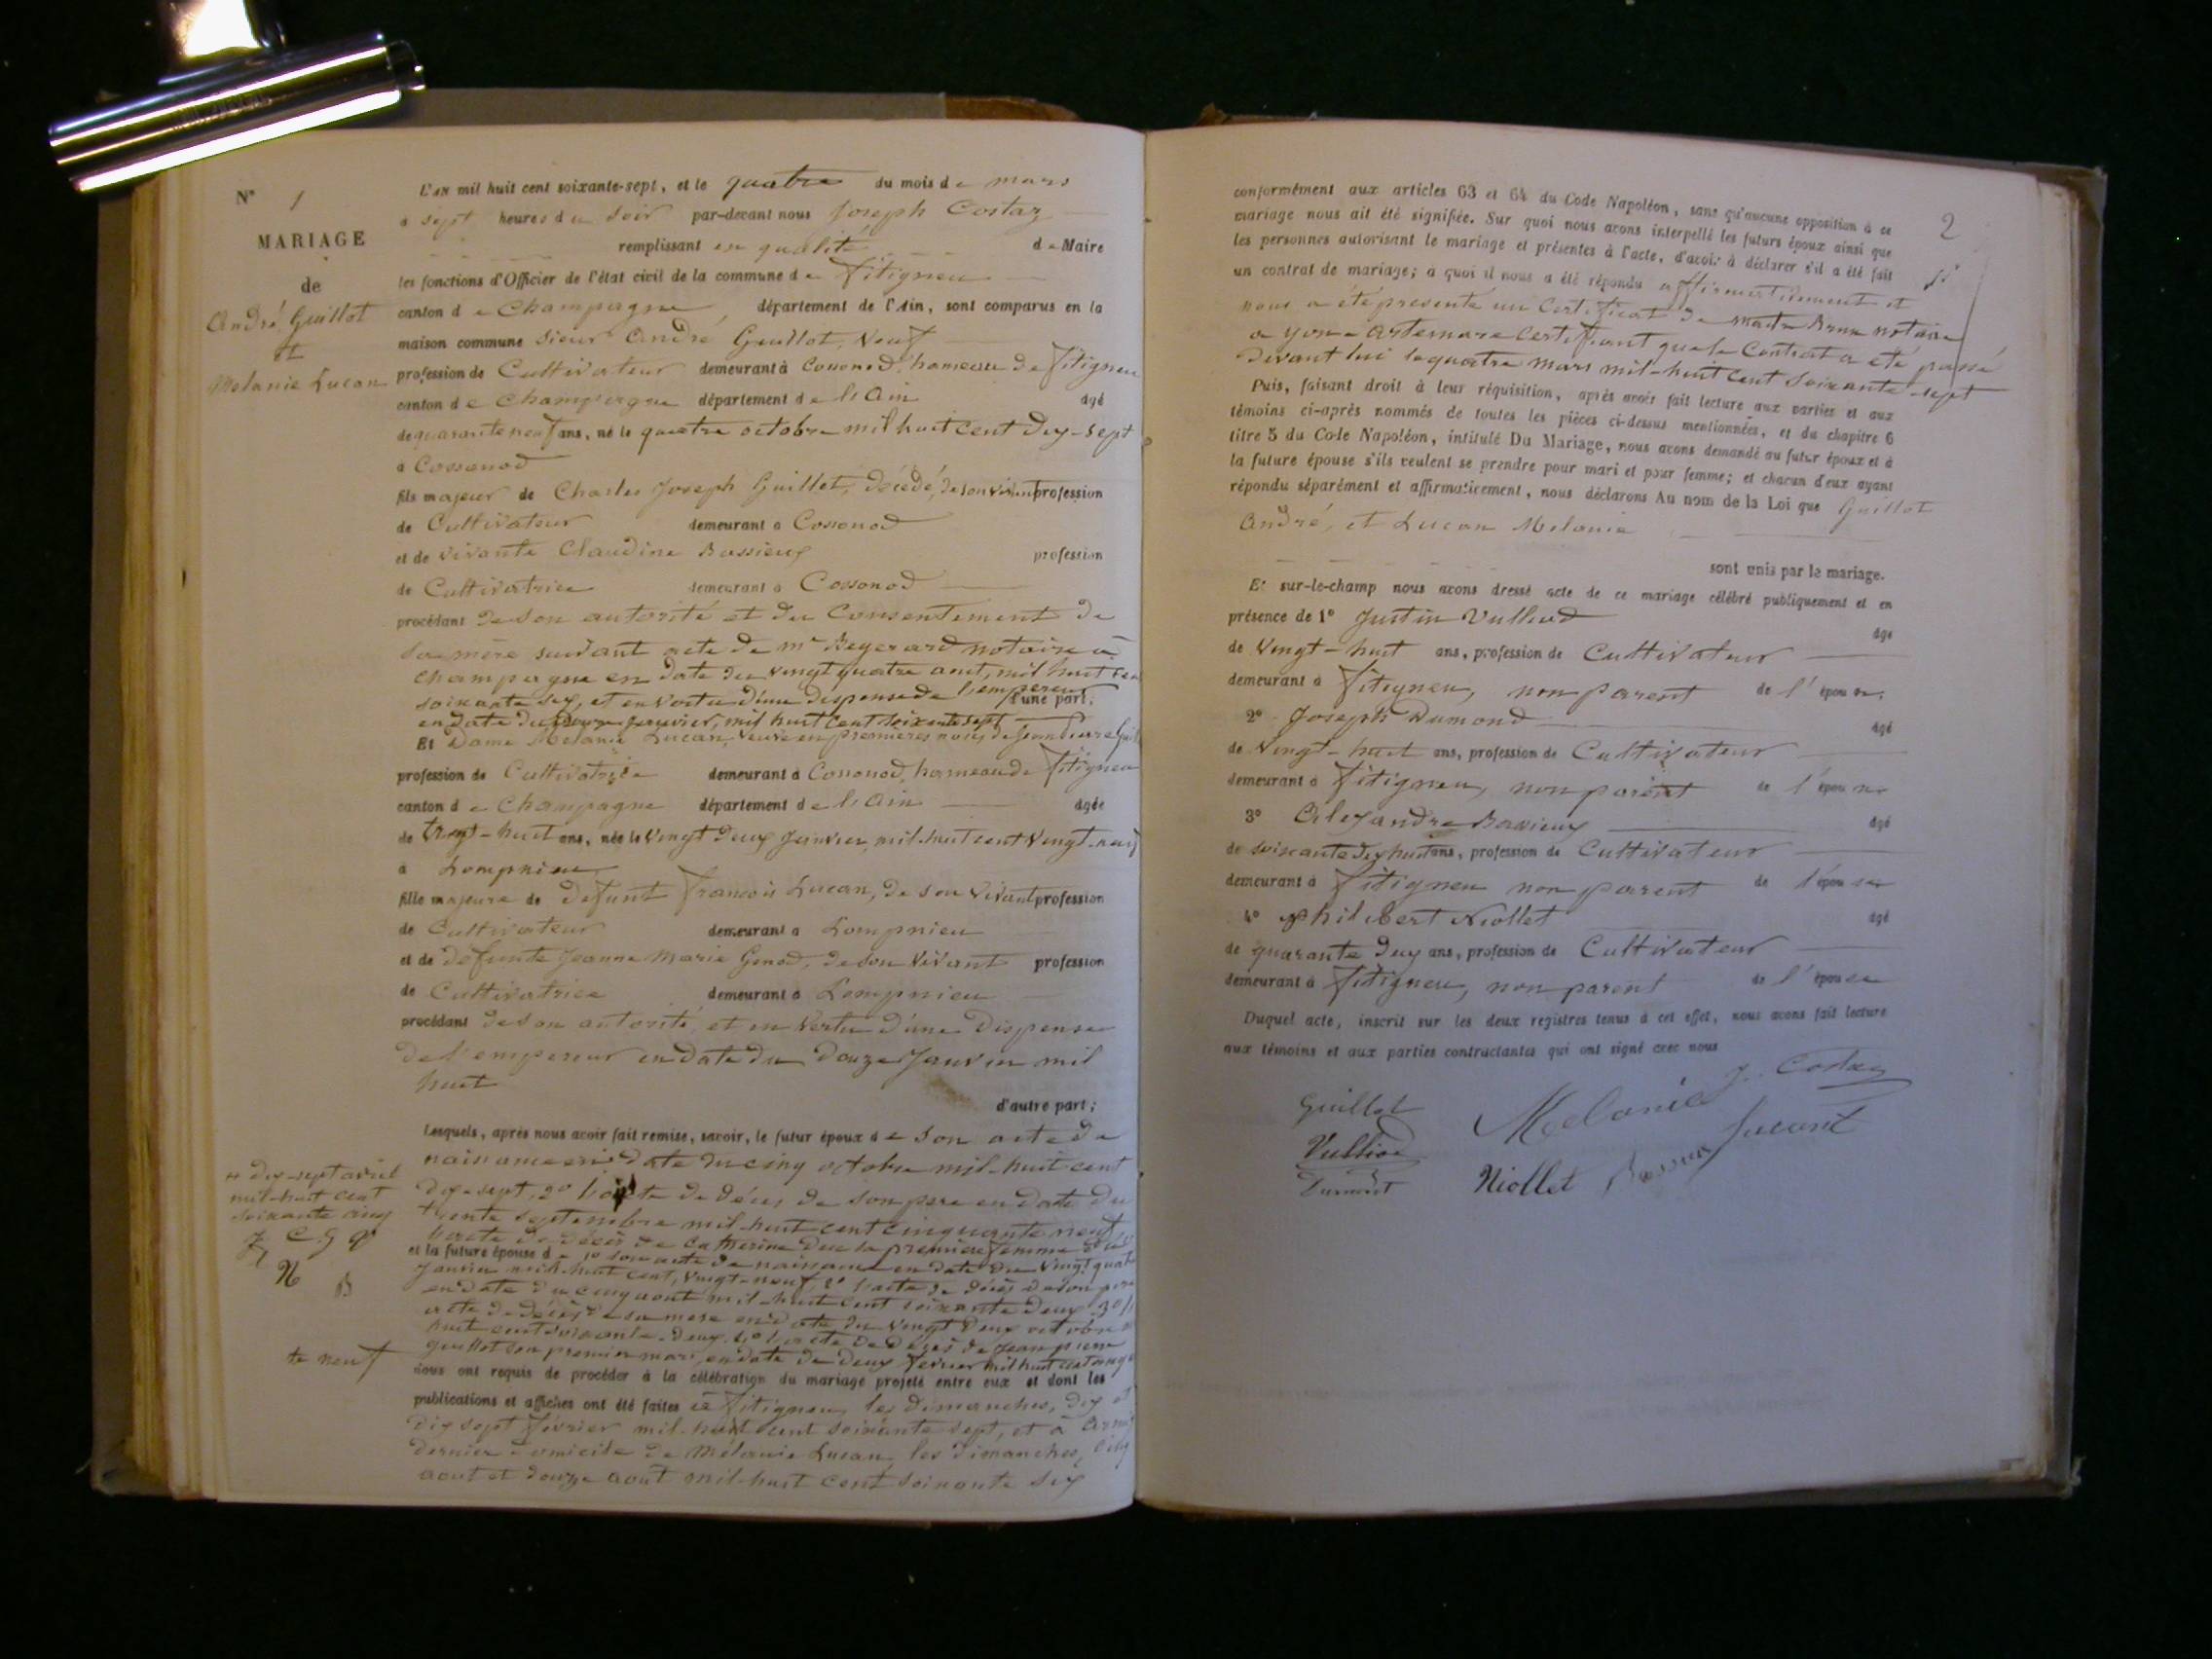 N° 1
MARIAGE
de
André Guillot
et
Melanie Lucan
L'an mil huit cent soixante-sept, et le quatre du mois de mars
à sept heures du soir par-devant nous Joseph Costaz
remplissant en qualité de Maire
les fonctions d'Officier de l'état civil de la commune de fitigneu
canton de Champagne, département de l'Ain, sont comparus en la
maison commune Sieur André Guillot, Veuf
profession de Cultivateur demeurant à Cossonod, hameau de fitigneu
canton de Champagne département de l'Ain âgé
de quarante neuf ans, né le quatre octobre mil huit cent dix-sept
à Cossonod
fils majeur de Charles Joseph Guillot, décédé, de son vivant profession
de Cultivateur demeurant à Cossonod
et de vivante Claudine Bassieux profession
de Cultivatrice demeurant à Cossonod
procédant de son autorité et du Consentement de
sa mère suivant acte de me notaire à
champagne en date du vingt quatre aout, mil huit cen
soixante six, et en vertu d'une dispense de l'empereur d'une part;
en date du douze janvier, mil huit cent soixante sept
Et Dame Melanie Lucan, veuve en premières noces de Jean Pierre Guil
profession de Cultivatrice demeurant à Cossonod, hameau de fitigneu
canton de Champagne département de l'Ain âgée
de trent-huit ans, née le vingt deux Janvier, mil-huit cent vingt-neuf
à Lompnieu
fille majeure de défunt françois Lucan, de son vivant profession
de Cultivateur demeurant à Lompnieu
et de défunte Jeanne Marie Genod, de son vivant profession
de Cultivatrice demeurant à Lompnieu
procédant de son autorité, et en vertu d'une Dispense
de l'empereur en date du Douze Janvier mil
huit
d'autre part;
Lesquels, après nous avoir fait remise, savoir, le futur époux de son acte de
naissance en date du cinq octobre mil-huit cent
dix-sept, 2° l'acte de décès de son père en date du
trente septembre mil-huit cent cinquante neuf
l'acte de décès de Catherine la première femme
et la future épouse de 1° son acte de naissance en date du vingt quatre
Janvier mil-huit cent, vingt-neuf 2° l'acte de décès de son père
en date du cinq aout mil-huit cent soixante deux 3° l'
acte de décès de sa mère en date du vingt deux octobre
huit cent soixante-deux, 4° l'acte de décès de Jean pierre
guillot son premier mari en date du deux fevrier mil huit
+ dix-sept avril
mil-huit cent
soixante cinq
J. C. G
N
B
te neuf
nous ont requis de procéder à la célébration du mariage projeté entre eux et dont les
publications et affiches ont été faites à fitigneu, les dimanches, dix et
dix sept février mil-huit cent soixante sept, et à
dernier domicile de Mélanie Lucan, les dimanches, cinq
aout et douze aout mil-huit cent soixante six
2
conformément aux articles 63 et 64 du Code Napoléon, sans qu'aucune opposition à ce
mariage nous ait été signifiée. Sur quoi nous avons interpellé les futurs époux ainsi que
les personnes autorisant le mariage et présentes à l'acte, d'avoir à déclarer s'il a été fait
un contrat de mariage; à quoi il nous a été répondu affirmativement et
nous a été présenté un Certificat de notaire
a Certifiant que le Contrat a été passé
devant lui le quatre mars mil-huit cent soixante sept
Puis, faisant droit à leur réquisition, après avoir fait lecture aux parties et aux
témoins ci-après nommés de toutes les pièces ci-dessus mentionnées, et du chapitre 6
titre 5 du Code Napoléon, intitulé Du Mariage, nous avons demandé au futur époux et à
la future épouse s'ils veulent se prendre pour mari et pour femme; et chacun d'eux ayant
répondu séparément et affirmativement, nous déclarons Au nom de la Loi que Guillot
André, et Lucan Melanie
sont unis par le mariage.
Et sur-le-champ nous avons dressé acte de ce mariage célébré publiquement et en
présence de 1° Justin Vulliod âgé
de vingt-huit ans, profession de Cultivateur
demeurant à fitigneu, non parent de l'époux
2° Joseph Dumond âgé
de vingt-huit ans, profession de Cultivateur
demeurant à fitigneu, non parent de l'époux
3° Alexandre Bassieux âgé
de soixante dix huit ans, profession de Cultivateur
demeurant à fitigneu non parent de l'épouse
4° philibert Niollet âgé
de quarante deux ans, profession de Cultivateur
demeurant à fitigneu, non parent de l'épouse
Duquel acte, inscrit sur les deux registres tenus à cet effet, nous avons fait lecture
aux témoins et aux parties contractantes qui ont signé avec nous
J. Costaz
Guillot Melanie
Vulliod
Dumont Niollet